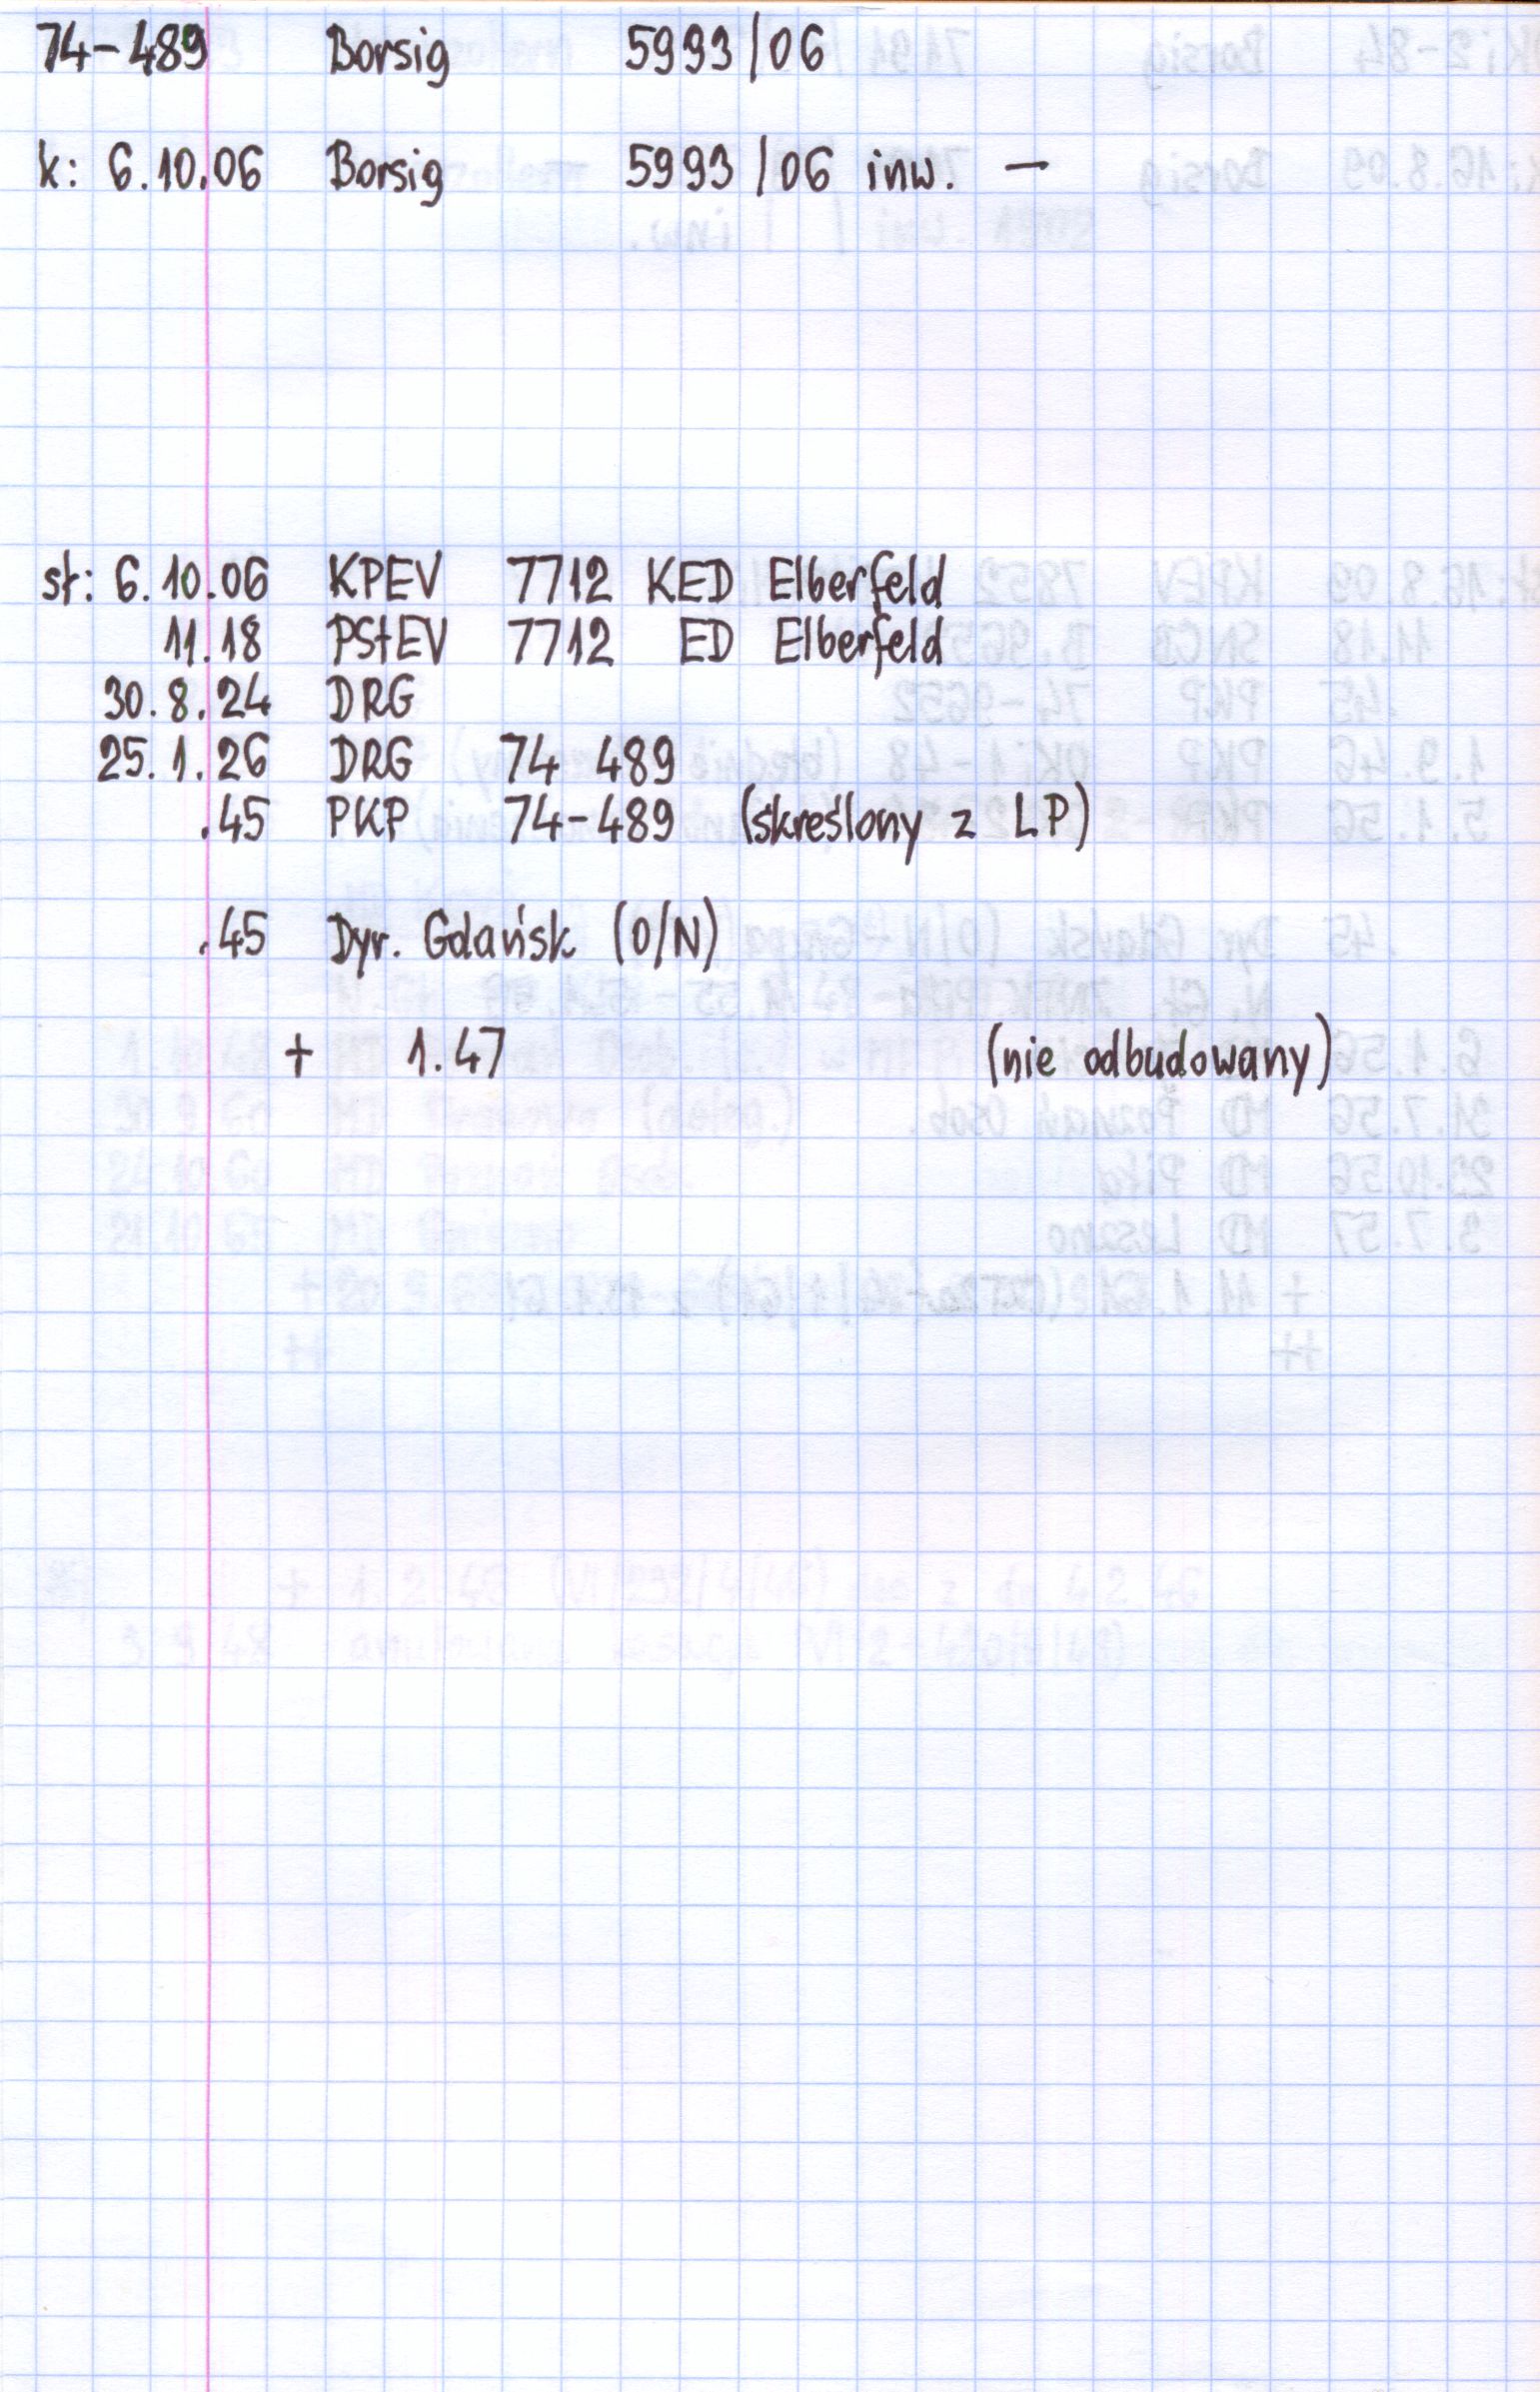 74-489 Borsig 5993/06
k: 6.10.06 Borsig 5993/06 inw. —
st: 6.10.06 KPEV 7712 KED Elberfeld
11.18 PStEV 7712 ED Elberfeld
30.8.24 DRG
25.1.26 DRG 74 489
.45 PKP 74-489 (skreślony z LP)
.45 Dyr. Gdańsk (O/N)
+ 1.47 (nie odbudowany)